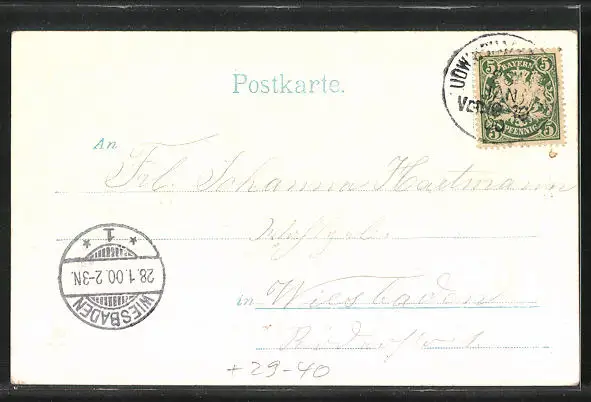 Postkarte.
UDW
JAN
5 BAYERN 5
5 PFENNIG 5
An
Frl. Johanna Hartmann
in Wiesbaden
WIESBADEN
28.1.00.2-3N.
* 1 *
+29-40